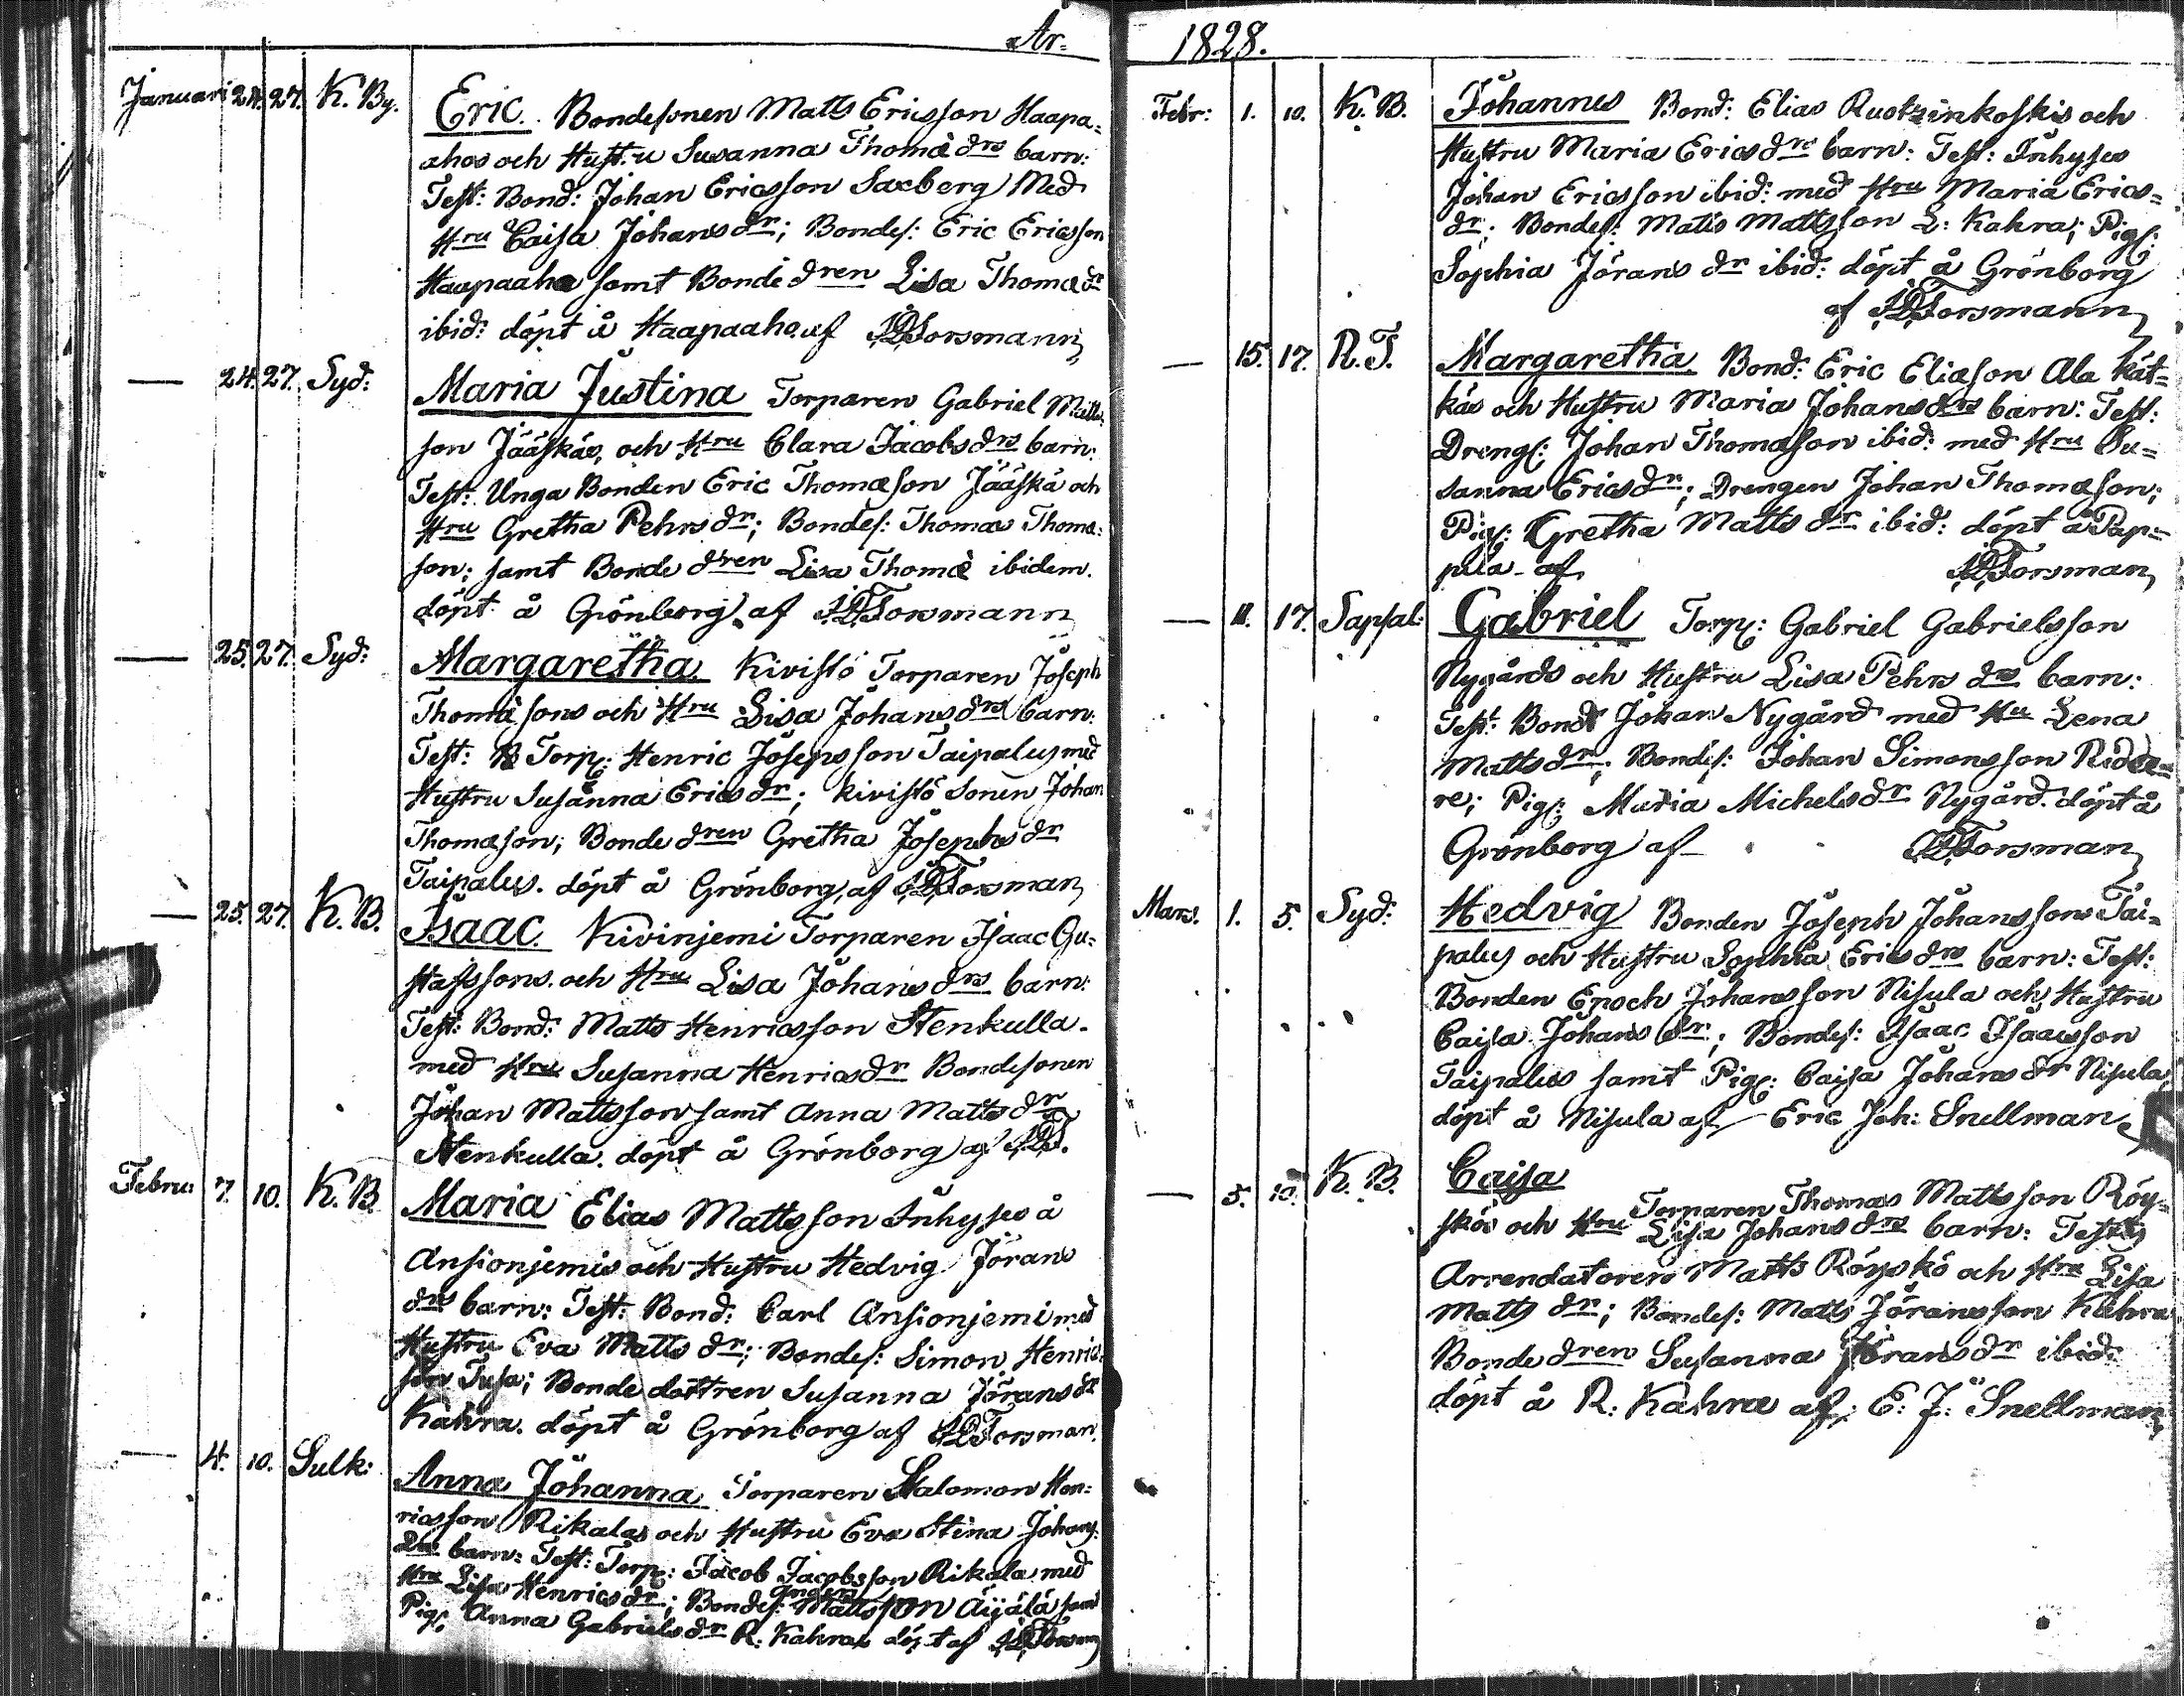 År 1828.
Januari 24. 27. K. By. Eric. Bondesonen Matts Ericsson Haapa=
ahos och Hustru Susanna Thomædrs barn:
Test: Bond: Johan Ericsson Saxberg Med
Hru Caisa Johansdr; Bondes: Eric Ericsson
Haapaaho samt Bondedren Lisa Thomædr
ibid: döpt å Haapaaho af Forsmann
— 24. 27. Syd: Maria Justina Torparen Gabriel Matts
son Jääskäs, och Hru Clara Jacobsdrs barn:
Test: Unga Bonden Eric Thomæson Jääskä och
Hru Gretha Pehrsdr; Bondes: Thomas Thomæ=
son; samt Bondedren Lisa Thomæ ibidem.
döpt å Grönborg af Forsmann
— 25. 27. Syd: Margaretha. Kivistö Torparen Joseph
Thomæsons och Hru Lisa Johansdrs barn:
Test: Torp: Henric Josepsson Taipalus med
Hustru Susanna Ericsdr; Kivistö sonen Johan
Thomæson; Bondedren Gretha Josephsdr
Taipalus. döpt å Grönborg, af Forsman
— 25. 27. K. B. Isaac. Kivinjemi Torparen Isaac Gu=
stafssons. och Hru Lisa Johansdrs barn:
Test: Bond: Matts Henricsson Stenkulla.
med Hru Susanna Henricsdr Bondesonen
Johan Mattsson samt Anna Mattsdr
Stenkulla. döpt å Grönborg af
Febru: 7. 10. K. B. Maria Elias Mattsson Inhyses å
Ansionjemis och Hustru Hedvig Jörans
drs barn: Test: Bond: Carl Ansionjemi med
Hustru Eva Mattsdr; Bondes: Simon Henrics
son Tusa; Bonde dottren Susanna Jöransdr
Kahra. döpt å Grönborg af Forsman.
— 4. 10. Sulk: Anna Johanna Torparen Salomon Hen=
ricsson Rikalas och Hustru Eva Stina Johans
drs barn: Test: Torp: Jacob Jacobsson Rikala med
Hru Lisa Henricsdr; Bondes: Mattsson Äijälä samt
Pig: Anna Gabrielsdr R: Kahra döpt af
Febr: 1. 10. K. B. Johannes Bond: Elias Ruotzinkoskis och
Hustru Maria Ericsdrs barn: Test: Inhyses
Johan Ericsson ibid: med Hru Maria Erics=
dr; Bondes: Matts Mattsson L: Kahra; Pig:
Sophia Jöransdr ibid: döpt å Grönborg
af Forsmann
— 15. 17. R. T. Margaretha. Bond: Eric Eliæson Ala Kät=
käs och Hustru Maria Johansdrs barn: Test:
Dreng: Johan Thomæson ibid: med Hru Su=
sanna Ericsdr; Drengen Johan Thomæson;
Pig: Gretha Mattsdr ibid: döpt å Pap=
pila af Forsman
— 11. 17. Sapsal: Gabriel Torp: Gabriel Gabrielsson
Nygårds och Hustru Lisa Pehrsdrs barn:
Test: Bond Johan Nygård med Hru Lena
Mattsdr; Bondes: Johan Simonsson
re; Pig: Maria Michelsdr Nygård. döpt å
Grönborg af Forsman
Mars. 1. 5. Syd: Hedvig Bonden Joseph Johanssons Tai=
palus och Hustru Sophia Ericsdrs barn: Test:
Bonden Enoch Johansson Nisula och Hustru
Caisa Johansdr; Bondes: Isaac Isaacsson
Taipalus samt Pig: Caisa Johansdr Nisula,
döpt å Nisula af Eric Joh: Snellman
— 5. 10. K. B. Caisa Torparen Thomas Mattsson Röy=
skös och Hru Lisa Johansdrs barn: Test:
Arrendatoren Matts Röyskö och Hru Lisa
Mattsdr; Bondes: Matts Jöransson Kahra
Bondedren Susanna Jöransdr ibid:
döpt å R: Kahra af: E: J: Snellman